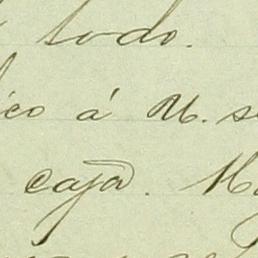 todo.
ico á M. s
caja. M